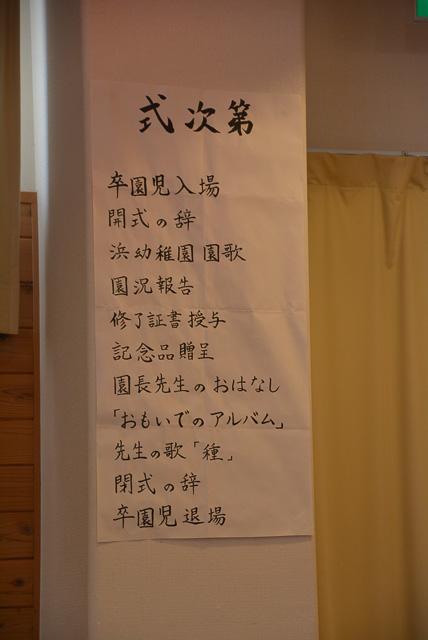 式次第
卒園児入場
開式の辞
浜幼稚園園歌
園況報告
修了証書授与
記念品贈呈
園長先生のおはなし
「おもいでのアルバム」
先生の歌「種」
閉式の辞
卒園児退場